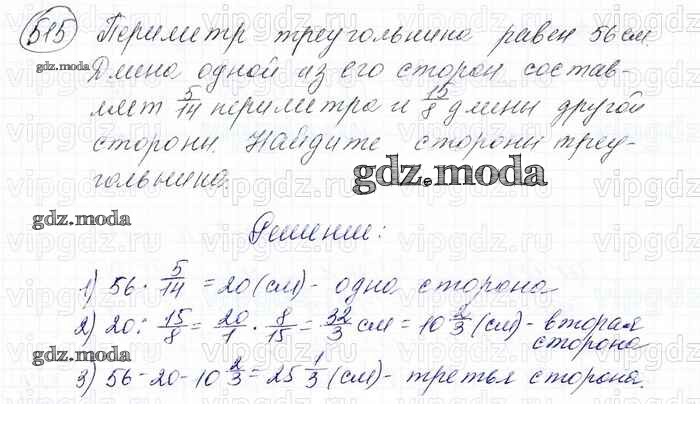 515 Периметр треугольника равен 56 см.
gdz.moda
Длина одной из его сторон состав-
ляет 5/14 периметра и 15/8 длины другой
стороны. Найдите стороны треу-
гольника.
gdz.moda
gdz.moda
Решение:
1) 56 · 5/14 = 20 (см) - одна сторона
2) 20 : 15/8 = 20/1 · 8/15 = 32/3 см = 10 2/3 (см) - вторая
сторона
gdz.moda
3) 56 - 20 - 10 2/3 = 25 1/3 (см) - третья сторона.